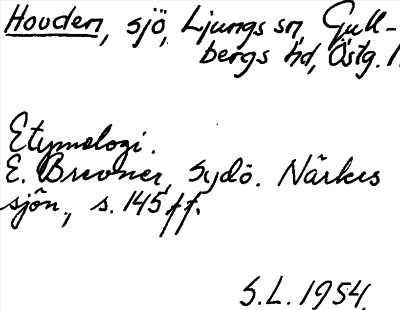 Hovden, sjö, Ljungs sn, Gull-
bergs hd, Östg. l.
Etymologi.
E. Brevner, Sydö. Närkes
sjön., s. 145 ff.
S.L. 1954.